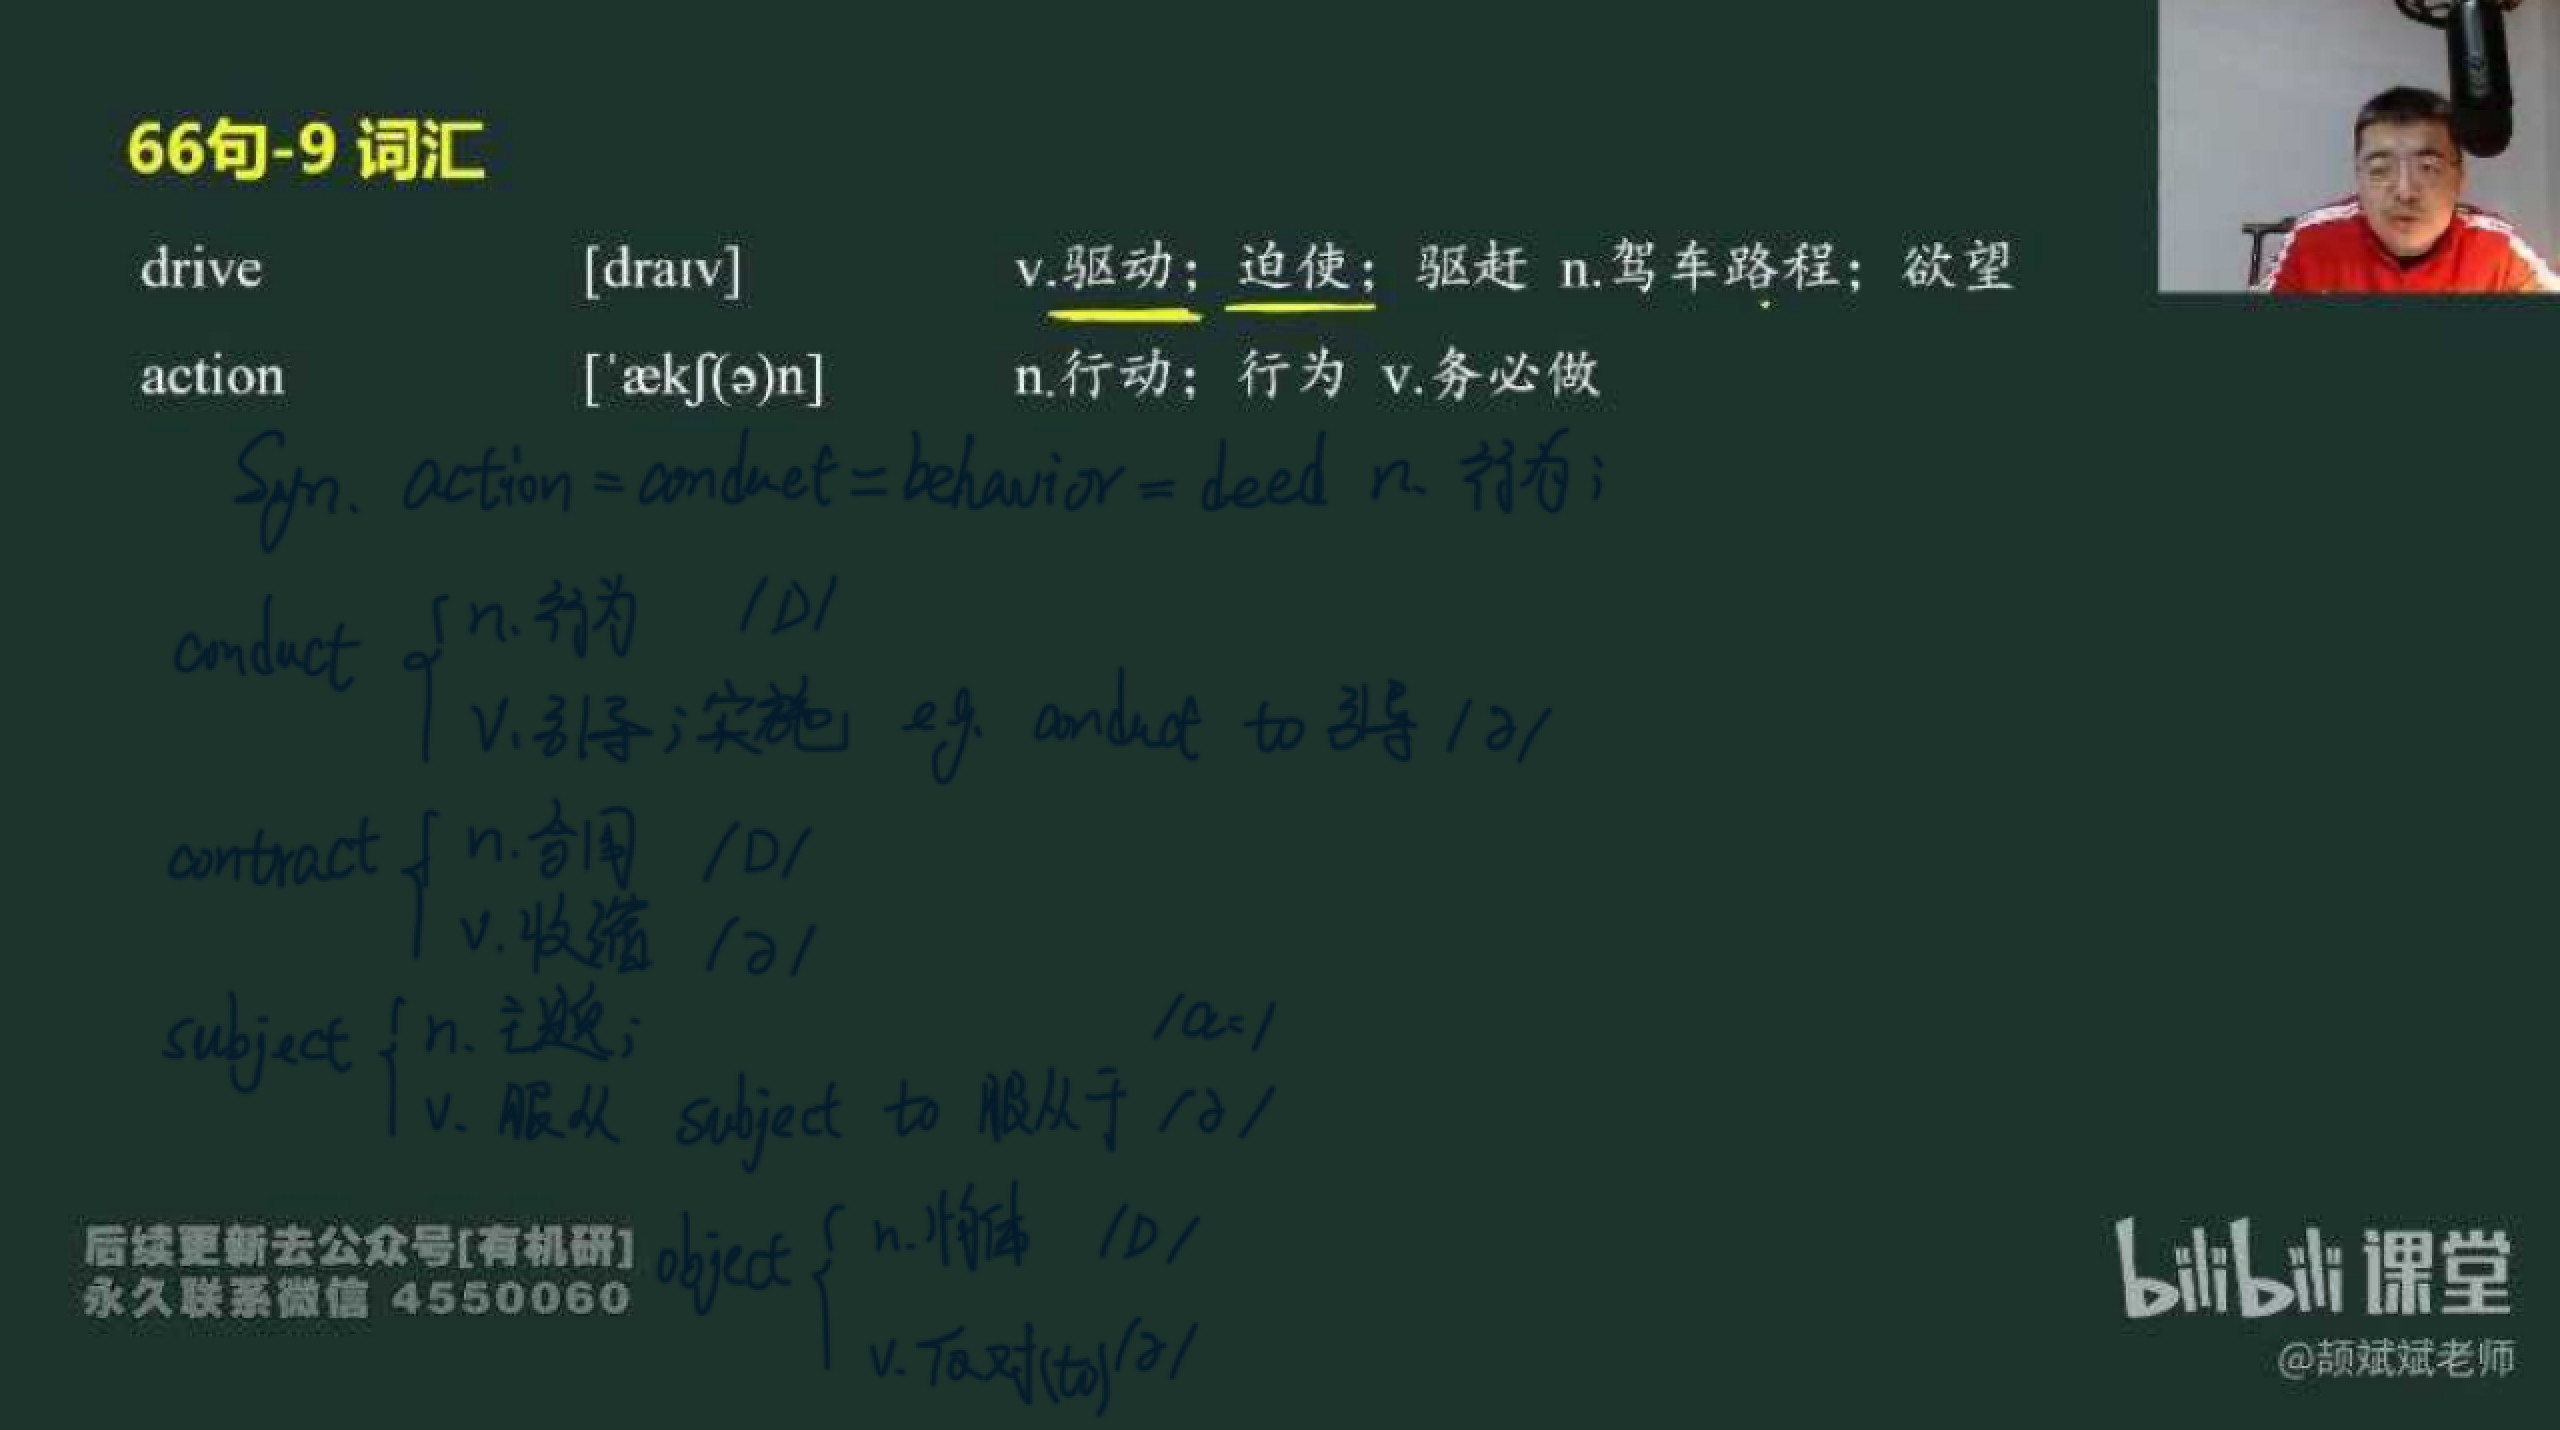 66句-9 词汇
drive [draɪv] v.驱动；迫使；驱赶 n.驾车路程；欲望
action [ˈækʃ(ə)n] n.行动；行为 v.务必做
Syn. action = conduct = behavior = deed n. 行为；
conduct n.行为 /D/
v.引导；实施 eg. conduct to 引导 /ə/
contract n.合同 /D/
v.收缩 /ə/
subject n. 主题；
/a=/
v. 服从 subject to 服从于 /ə/
object n.物体 /D/
v.反对(to) /ə/
后续更新去公众号[有机研]
永久联系微信 4550060
bilibili 课堂
@颉斌斌老师